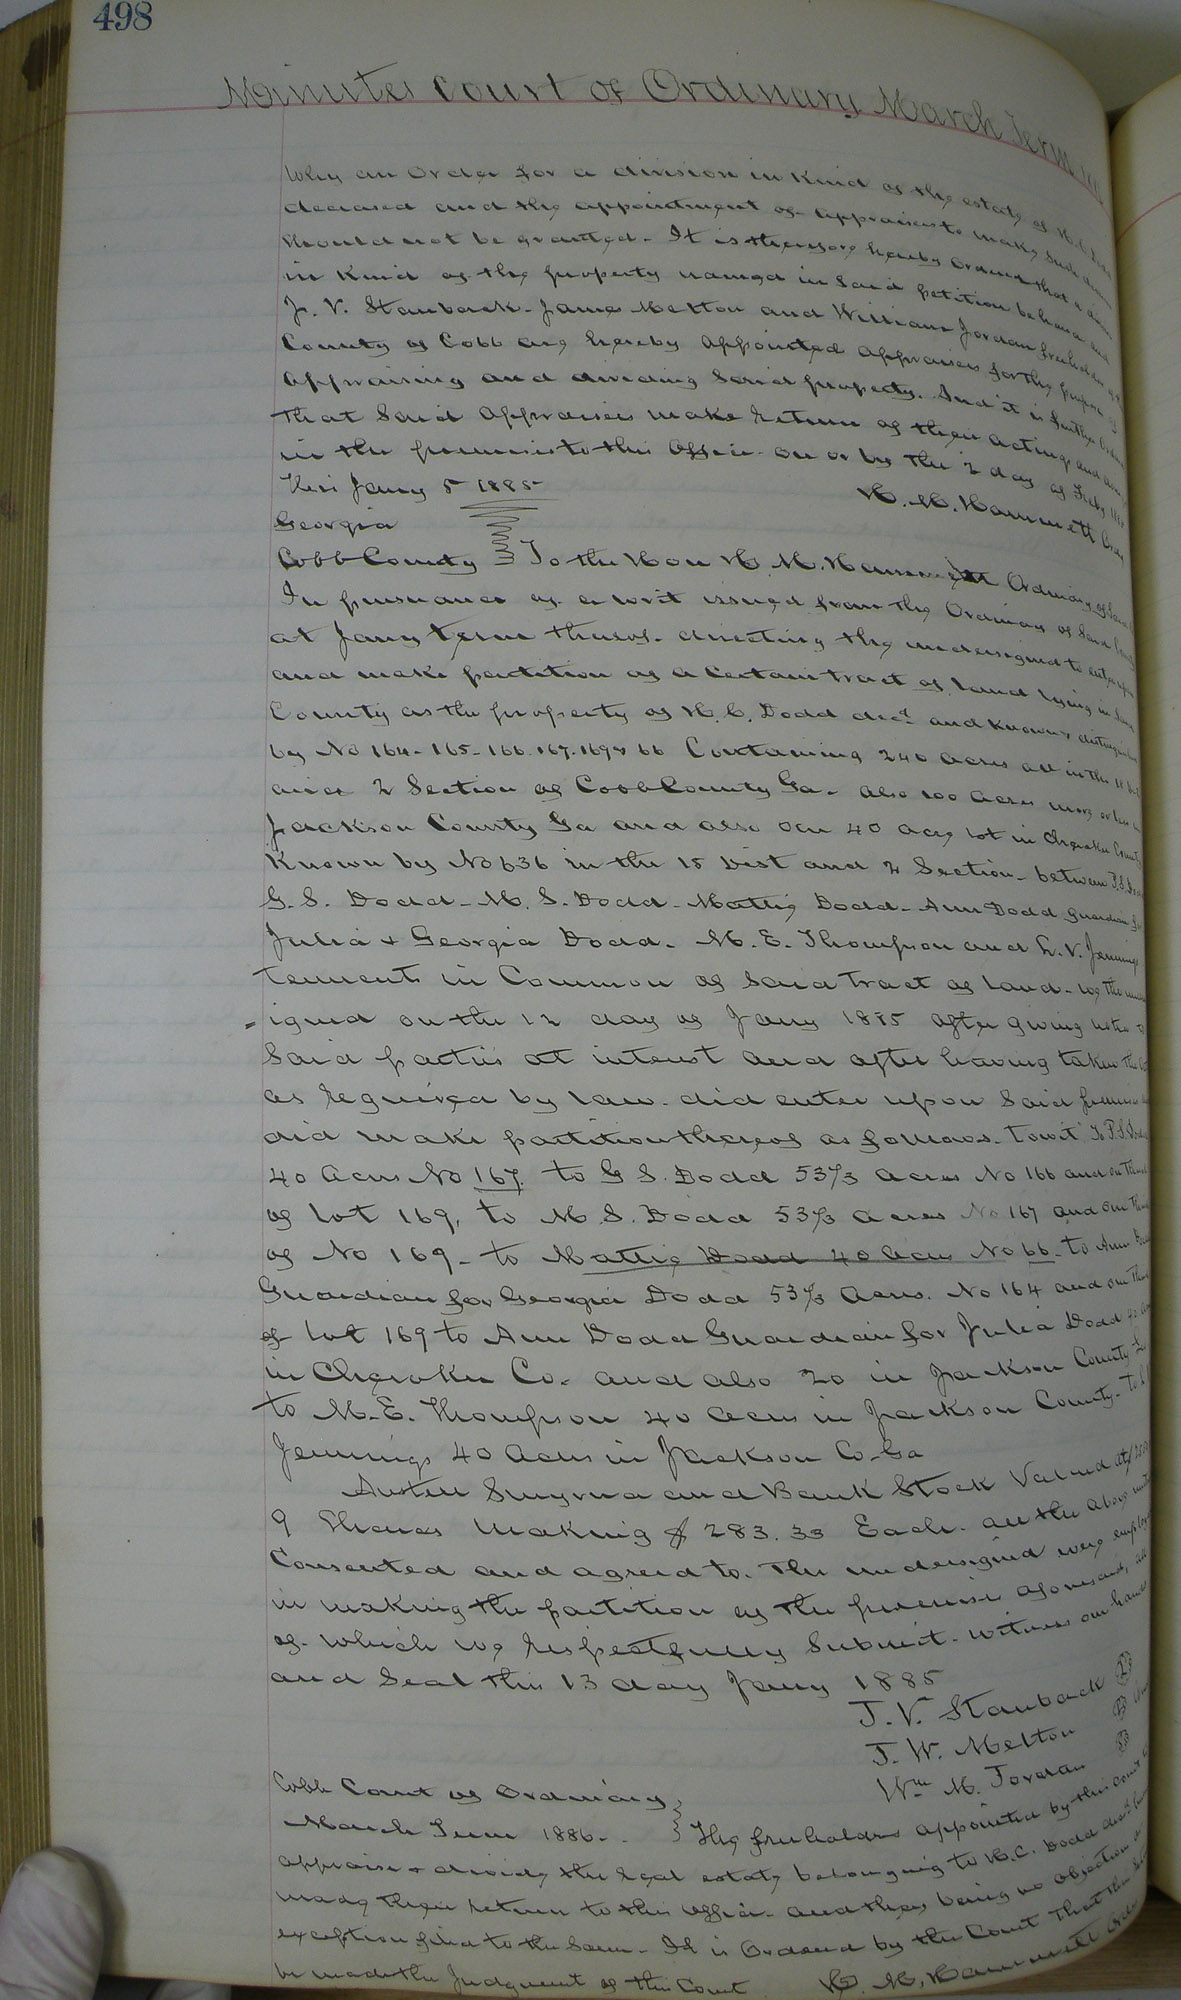 498
Minutes Court of Ordinary March Term
Why an Order for a division in Kind of the estate of H. C. Dodd
deceased and the appointment of appraisers to make such
should not be granted. It is therefore hereby Ordered that a
in Kind of the property named in said petition be had and
J. V. Stanback. James Melton and William Jordan freeholders of
County of Cobb are hereby appointed appraisers for the purpose of
appraising and dividing said property. And it is further Ordered
that said appraisers make return of their actings and
in the premises to this office on or by the 2 day of Feby
This Jany 5 1885 H. M. Hammett Ordy
Georgia
Cobb County } To the Hon H. M. Hammett Ordinary of said
In pursuance of a writ issued from the Ordinary of said County
at Jany term thereof. directing the undersigned to enter upon
and make partition of a certain tract of land lying in said
County as the property of H. C. Dodd decd and known & distinguished
by No 164-165-166.167.169 & 66 Containing 240 acres all in the
and 2 Section of Cobb County Ga. also 100 acres more or less in
Jackson County Ga and also on 40 acre lot in Cherokee County
Known by No 636 in the 15 Dist and 2 Section. between P. S. Dodd
G. S. Dodd. M. S. Dodd. Mattie Dodd. Ann Dodd guardian for
Julia & Georgia Dodd. M. E. Thompson and L. V. Jennings
tennents in Common of said tract of land. we the unders
=igned on the 12 day of Jany 1885 after giving notice to
said parties at interest and after having taken the
as required by law. did enter upon said premises
did make partition thereof as follows. towit To P. S. Dodd
40 acres No 167. to G S. Dodd 53 1/3 acres No 166 and on third
of lot 169, to M. S. Dodd 53 1/3 acres No 167 and on third
of No 169. to Mattie Dodd 40 acres No 66. to Ann Dodd
Guardian for Georgia Dodd 53 1/3 acres. No 164 and on third
of lot 169 to Ann Dodd Guardian for Julia Dodd 40
in Cherokee Co. and also 20 in Jackson County
to M. E. Thompson 40 acres in Jackson County. to L
Jennings 40 acres in Jackson Co. Ga
Austin Smyrna and Bank Stock Valued at
9 Shares making $ 283.33 Each. all the above
Consented and agreed to. The undersigned were employed
in making the partition of the premises aforesaid, all
of which we respectfully submit. witness our hands
and seal this 13 day Jany 1885
J. V. Stanback
J. W. Melton
Wm M. Jordan
Cobb Court of Ordinary
March Term 1886. } The freeholders appointed by this Court
appraise & divide the real estate belonging to H. C. Dodd decd
made their return to this office. and there being no objection or
exception filed to the same. It is Ordered by the Court that the
be made the Judgment of this Court H. M. Hammett